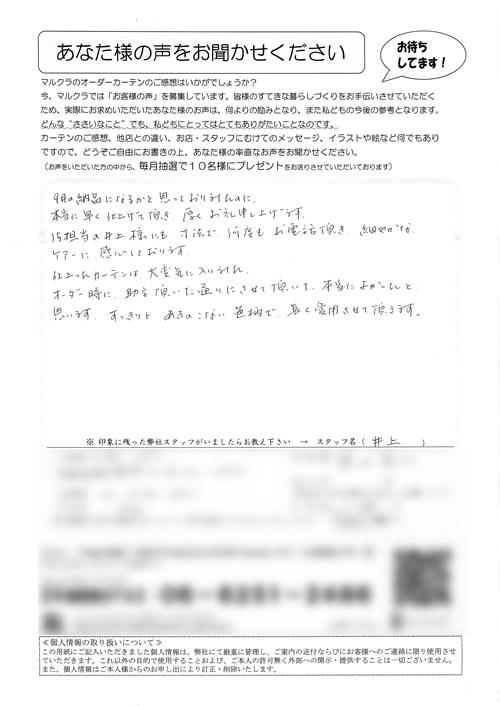 あなた様の声をお聞かせください
お待ち
してます!
マルクラのオーダーカーテンのご感想はいかがでしょうか?
今、マルクラでは「お客様の声」を募集しています。皆様のすてきな暮らしづくりをお手伝いさせていただく
ため、実際にお求めいただいたあなた様のお声は、何よりの励みとなり、また私どもの今後の参考となります。
どんな“ささいなこと”でも、私どもにとってはとてもありがたいことなのです。
カーテンのご感想、他店との違い、お店・スタッフにむけてのメッセージ、イラストや絵など何でもあり
ですので、どうぞご自由にお書きの上、あなた様の率直なお声をお聞かせください。
(お声をいただいた方の中から、毎月抽選で10名様にプレゼントをお送りさせていただいております)
9月の納品になるかと思っておりましたのに、
本当に早く仕上げて頂き、厚くお礼申し上げます。
ご担当の井上様にも、寸法で、何度もお電話頂き、細やかな
ケアーに感心しております。
仕上ったカーテンは大変気に入りました。
オーダー時に、助言頂いた通りにさせて頂いて、本当によかったと
思います。すっきりとあきのこない色柄で、長く愛用させて頂きます。
※ 印象に残った弊社スタッフがいましたらお教え下さい → スタッフ名(井上 )
06-6251-2486
≪個人情報の取り扱いについて≫
この用紙にご記入いただきました個人情報は、弊社にて厳重に管理し、ご案内の送付ならびにお客様へのご連絡に限り使用させ
ていただきます。これ以外の目的で使用することおよび、ご本人の許可無く外部への開示・提供することは一切ございません。
また、個人情報はご本人様からのお申し出により訂正・削除いたします。